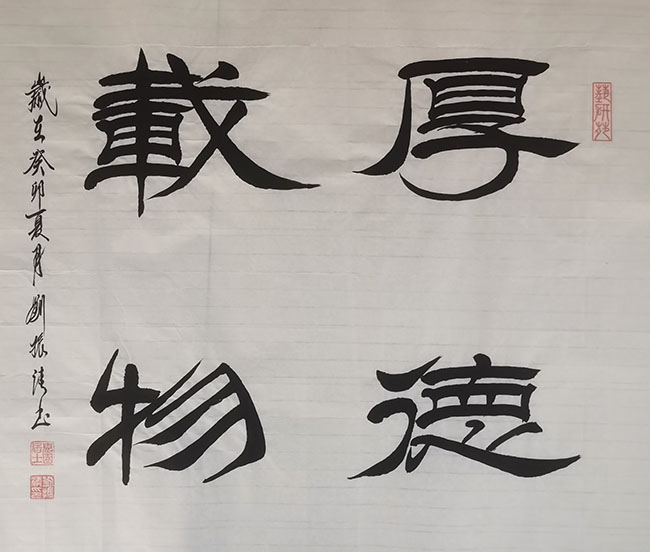 藝研苑
厚德
載物
歲在癸卯夏月劉振清書